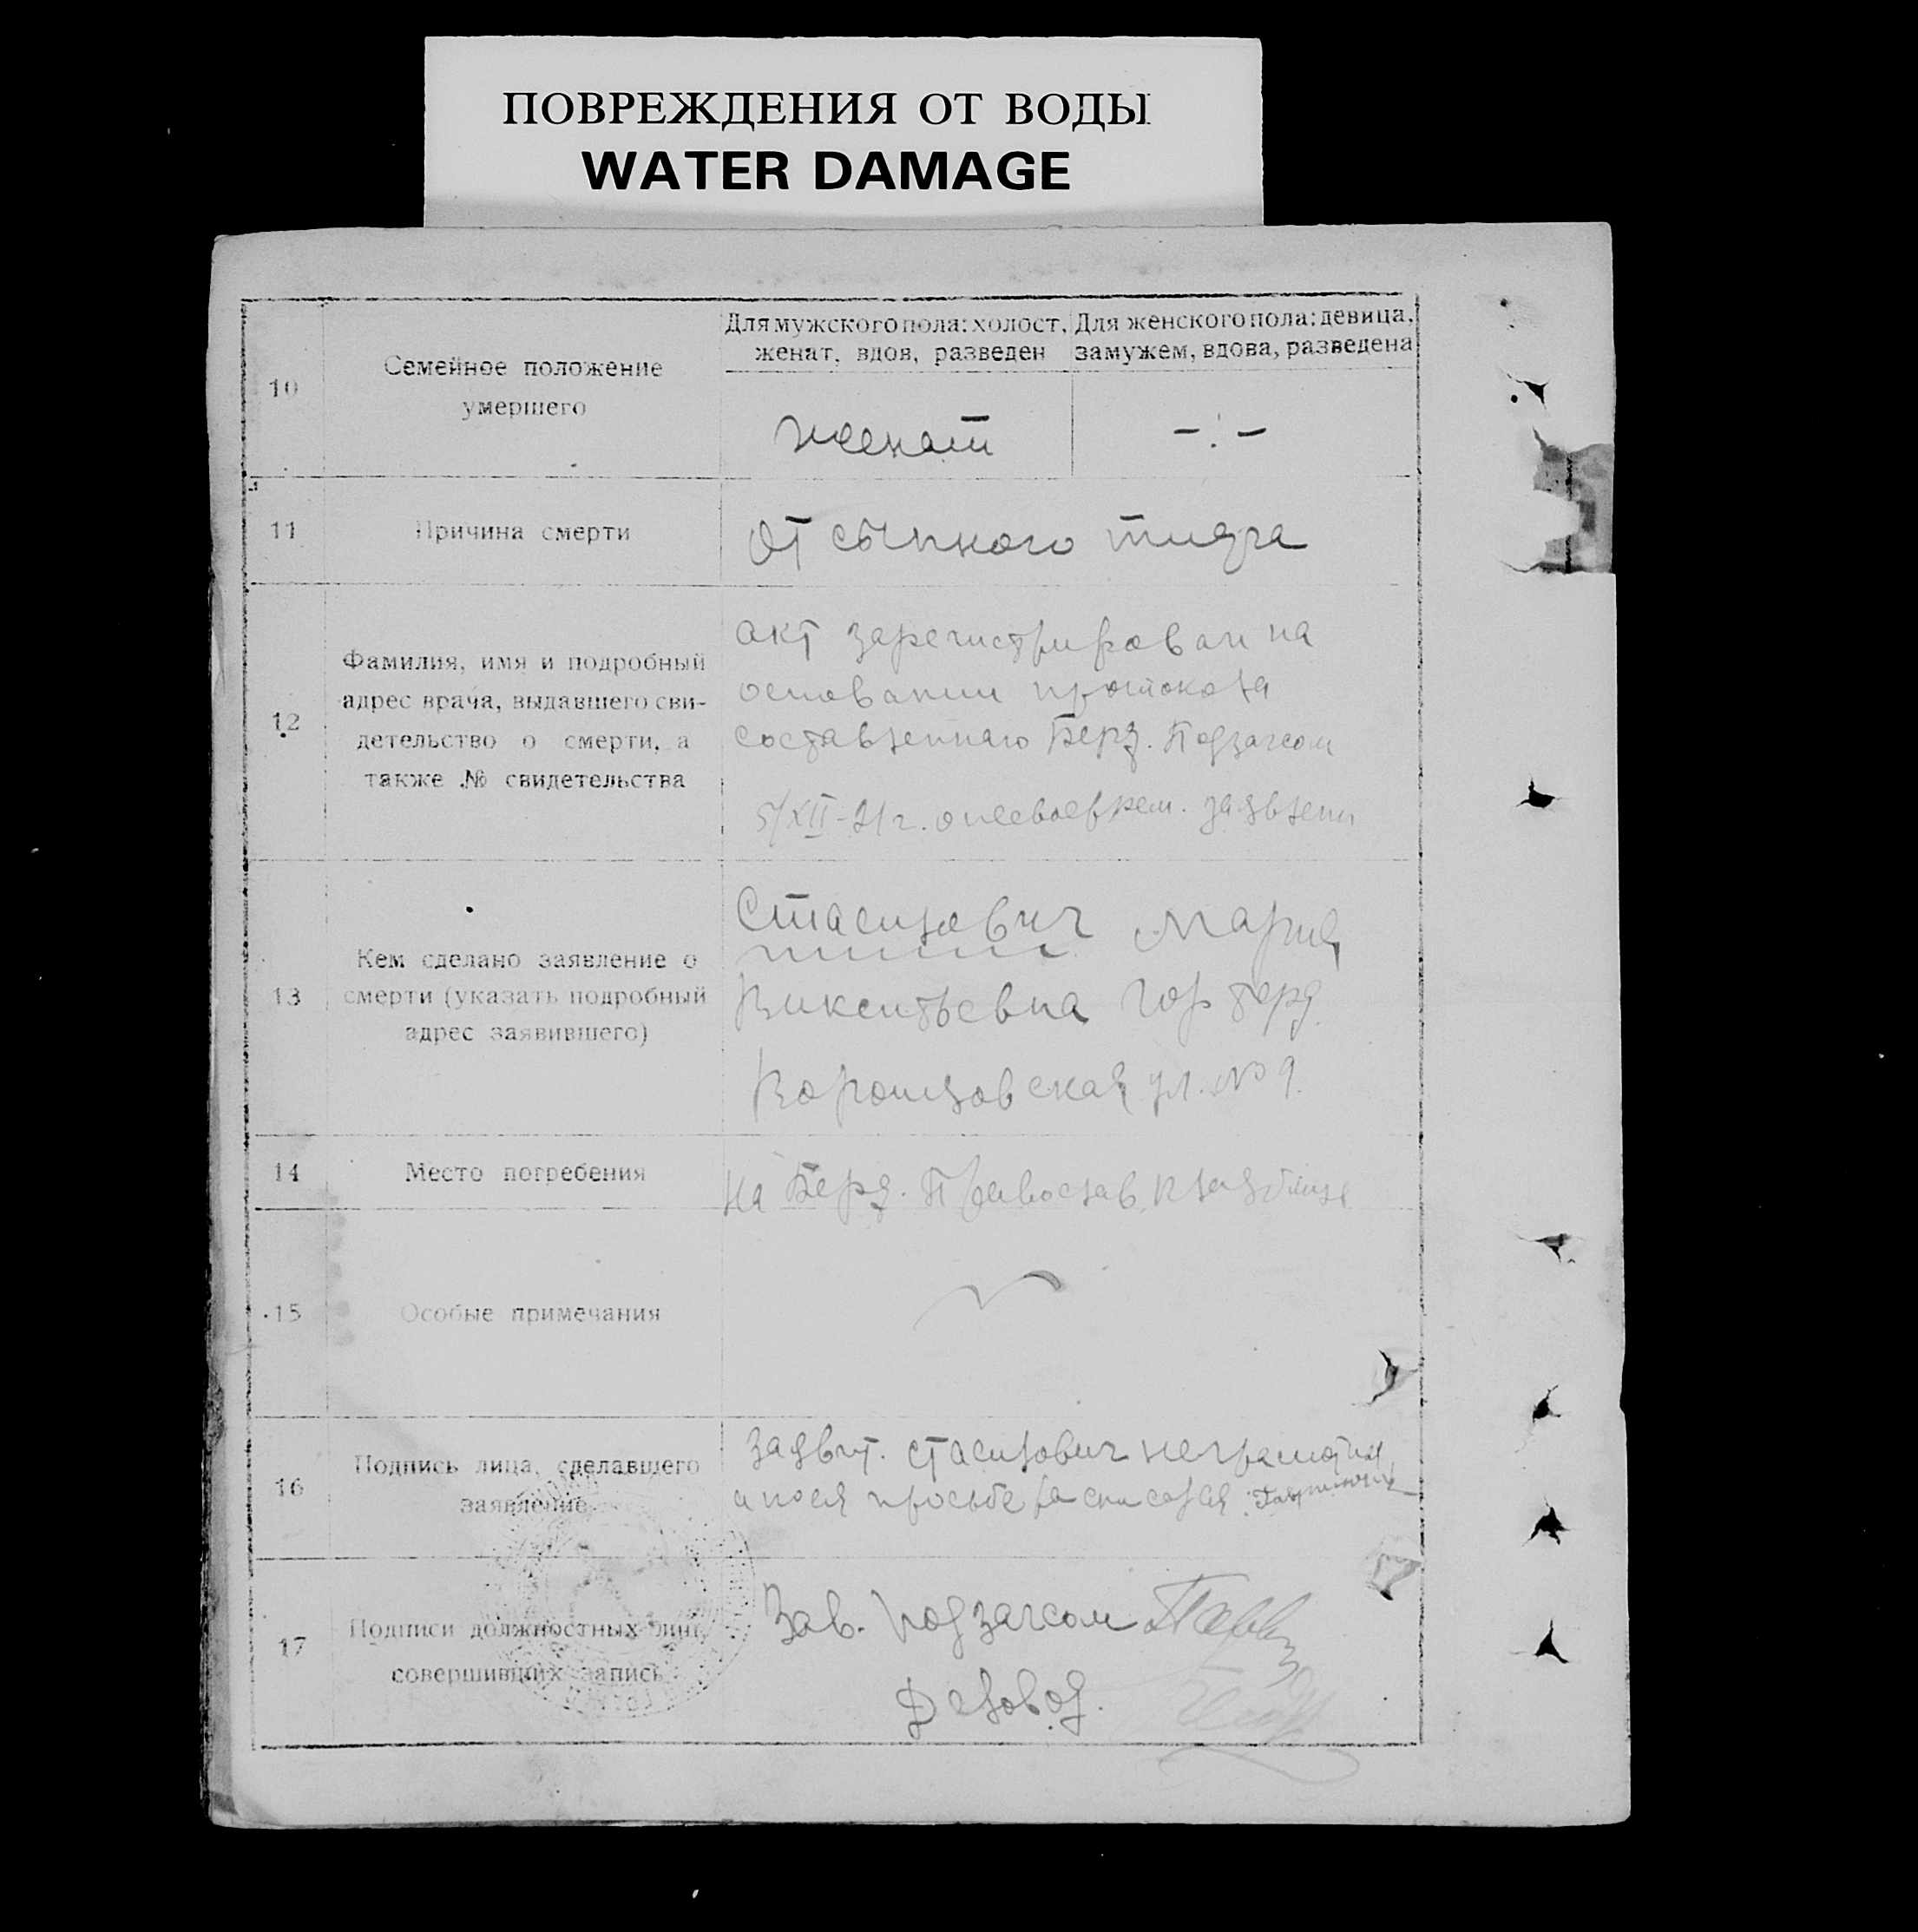 ПОВРЕЖДЕНИЯ ОТ ВОДЫ
WATER DAMAGE
10
Семейное положение
умершего
Для мужского пола: холост,
женат, вдов, разведен
Для женского пола: девица,
замужем, вдова, разведена
женат
-:-
11
Причина смерти
от сыпного тифа
12
Фамилия, имя и подробный
адрес врача, выдавшего сви-
детельство о смерти, а
также № свидетельства
акт зарегистрирован на
основании протокола
составленного Берд. Подзагсом
5/XII-21г. о несвоеврем. заявлении
13
Кем сделано заявление о
смерти (указать подробный
адрес заявившего)
Стасилович Мария
Викентьевна гор Берд.
ул. № 9.
14
Место погребения
на Берд. Православ. кладбище
15
Особые примечания
16
Подпись лица, сделавшего
заявление
Заявит. Стасилович неграмотная
а по ея просьбе расписался
17
Подписи должностных лиц,
совершивших запись
Зав. Подзагсом
Деловод.